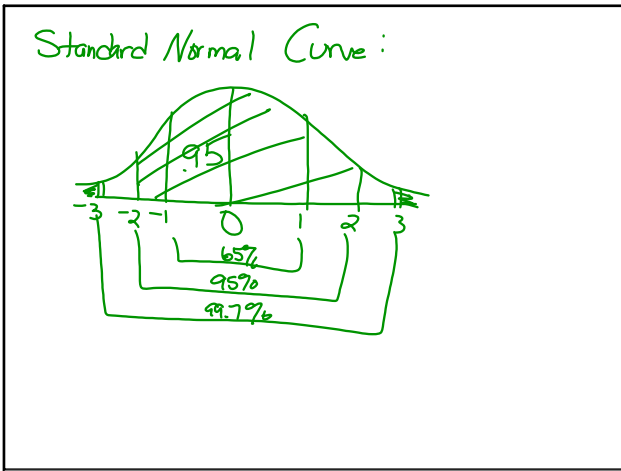 Standard Normal Curve:
.95
-3 -2 -1 0 1 2 3
65%
95%
99.7%